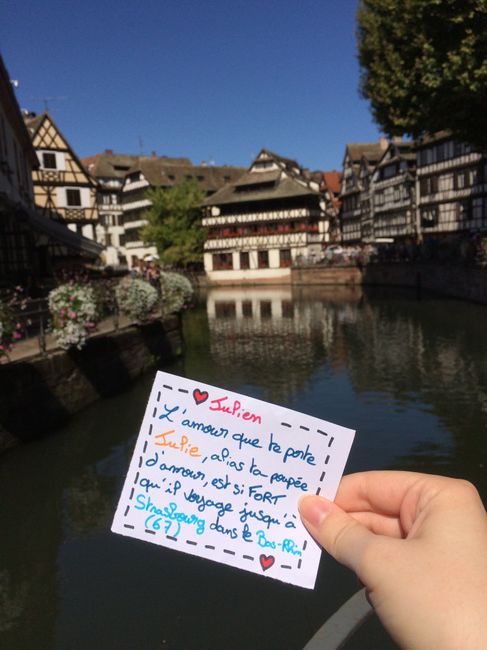 Julien
L'amour que te porte
Julie, alias ta poupée
d'amour, est si FORT
qu'il voyage jusqu'à
Strasbourg dans le Bas-Rhin
(67)